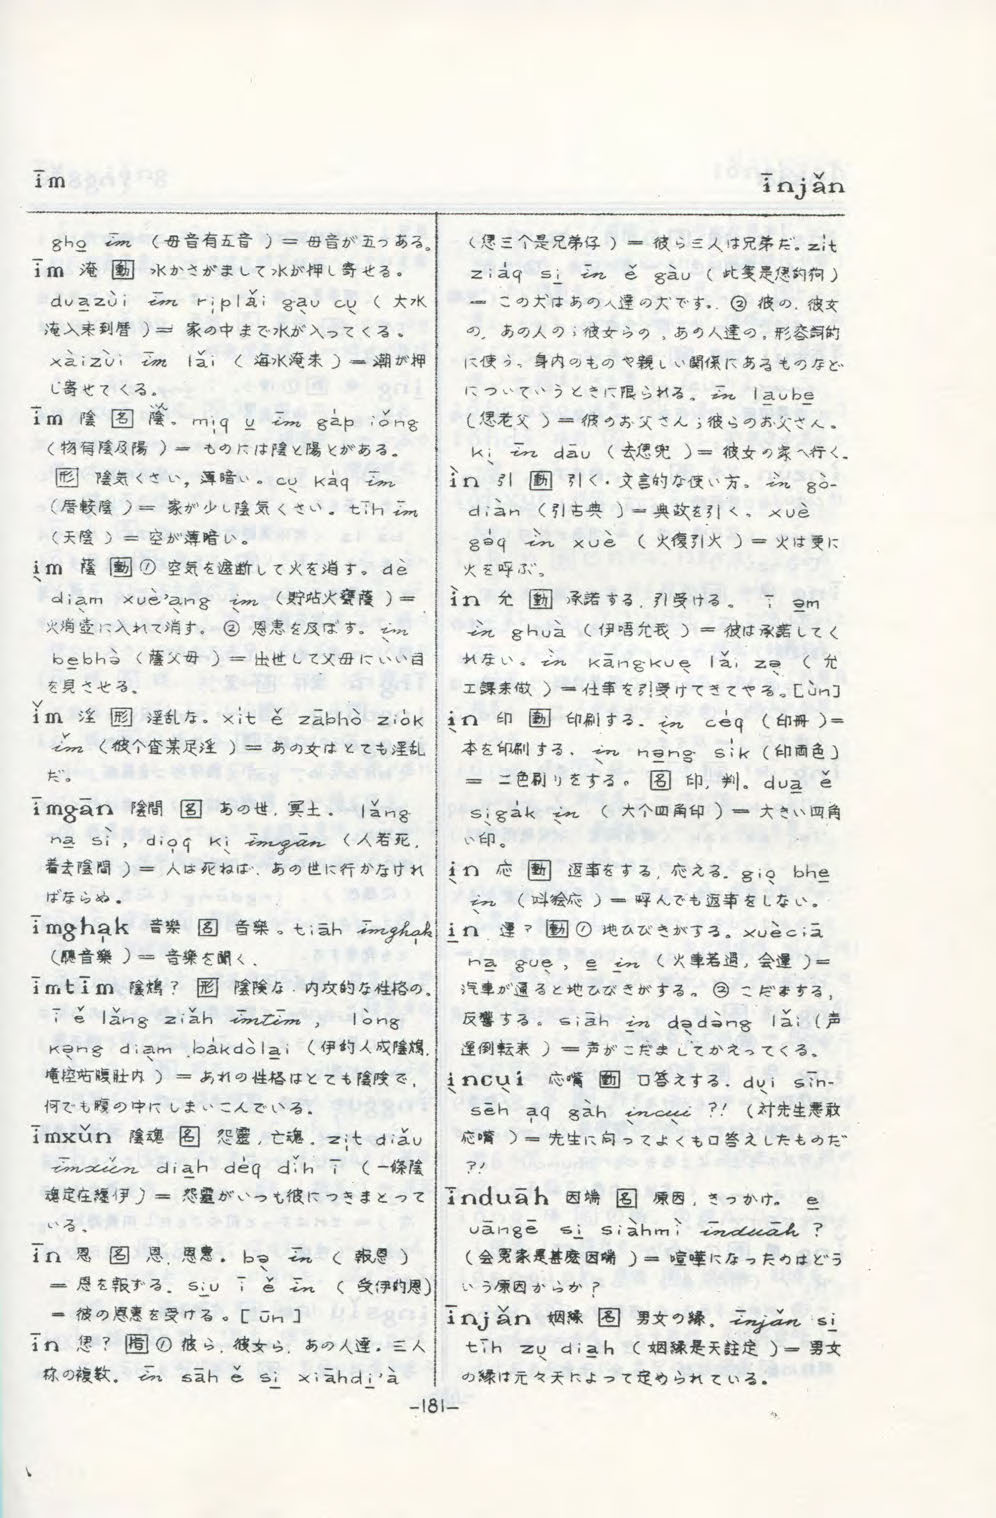 īm
īnjǎn
gho̱ īm (母音有五音) = 母音が五つある。
īm 淹 動 水かさがまして水が押し寄せる。
du̱azùi īm ri̍plǎi ga̱u cụ (大水
淹入来到厝) = 家の中まで水が入ってくる。
xàizùi īm lǎi (海水淹来) = 潮が押
し寄せてくる。
īm 陰 名 陰。mi̍q u̱ īm ga̍p iǒng
(物有陰及陽) = ものには陰と陽とがある。
形 陰気くさい, 薄暗い。cụ kàq īm
(厝較陰) = 家が少し陰気くさい。tīh īm
(天陰) = 空が薄暗い。
ịm 蔭 動 ① 空気を遮断して火を消す。dè
diạm xuè'ạng ịm (貯站火甕蔭) =
火消壺に入れて消す。② 恩恵を及ぼす。ịm
be̱bhə̀ (蔭父母) = 出世して父母にいい目
を見させる。
ǐm 淫 形 淫乱な。xit ě zābhò ziok
ǐm (彼个查某足淫) = あの女はとても淫乱
だ。
īmgān 陰間 名 あの世, 冥土。lǎng
na̱ sì, dio̍q kị īmgān (人若死,
着去陰間) = 人は死ねば, あの世に行かなけれ
ばならぬ。
īmgha̍k 音樂 名 音楽。tiāh īmgha̍k
(聽音樂) = 音楽を聞く。
īmtīm 陰鴆? 形 陰険な, 内攻的な性格の。
ī ě lǎng ziǎh īmtīm, lòng
kəng diạm bakdòla̱i (伊的人成陰鴆,
攏控站腹肚内) = あれの性格はとても陰険で,
何でも腹の中にしまいこんでいる。
īmxǔn 陰魂 名 怨靈, 亡魂。zi̍t diǎu
īmxǔn diah de̍q dǐh ī (一條陰
魂定在纏伊) = 怨霊がいつも彼につきまとって
いる。
īn 恩 名 恩, 恩恵。bə̣ īn (報恩)
= 恩を報ずる。si̱u ī ě īn (受伊的恩)
= 彼の恩恵を受ける。[ūn]
īn 偲? 指 ① 彼ら, 彼女ら, あの人達。三人
称の複数。īn sāh ě si̱ xiāhdi̱'à
(偲三个是兄弟仔) = 彼ら三人は兄弟だ。zit
ziáq si̱ īn ě gàu (此隻是偲的狗)
= この犬はあの人達の犬です。② 彼の, 彼女
の, あの人の; 彼女らの, あの人達の, 形容詞的
に使う。身内のものや親しい関係にあるものなど
についていうときに限られる。īn la̱ube̱
(偲老父) = 彼のお父さん; 彼らのお父さん。
kị īn dāu (去偲兜) = 彼女の家へ行く。
ìn 引 動 引く・文言的な使い方。ìn gò-
diàn (引古典) = 典故を引く。xuè
gəq ìn xuè (火復引火) = 火は更に
火を呼ぶ。
ìn 允 動 承諾する, 引受ける。ī ə̱m
ìn ghuà (伊唔允我) = 彼は承諾してく
れない。ìn kāngkue̱ lǎi zə̣ (允
工課来做) = 仕事を引受けてきてやる。[ùn]
ịn 印 動 印刷する。ịn ceq (印冊) =
本を印刷する。ịn nə̱ng sik (印両色)
= 二色刷りをする。名 印, 判。du̱a ě
sịgak ịn (大个四角印) = 大きい四角
い印。
ịn 応 動 返事をする, 応える。giọ bhe̱
ịn (叫袂応) = 呼んでも返事をしない。
i̱n 運? 動 ① 地ひびきがする。xuèciā
na̱ gụe, e̱ i̱n (火車若過, 会運) =
汽車が通ると地ひびきがする。② こだまする,
反響する。siāh i̱n də̣dəng lǎi (声
運倒転来) = 声がこだましてかえってくる。
ịncụi 応嘴 動 口答えする。dụi sīn-
sēh aq gàh ịncụi ?! (対先生悪敢
応嘴) = 先生に向ってよくも口答えしたものだ
?!
īnduāh 因端 名 原因, きっかけ。e̱
uāngē si̱ siàhmì īnduāh ?
(会冤家是甚麼因端) = 喧嘩になったのはどう
いう原因からか?
īnjǎn 姻緣 名 男女の縁。īnjǎn si̱
tīh zụ diạh (姻緣是天註定) = 男女
の縁は元々天によって定められている。
-181-